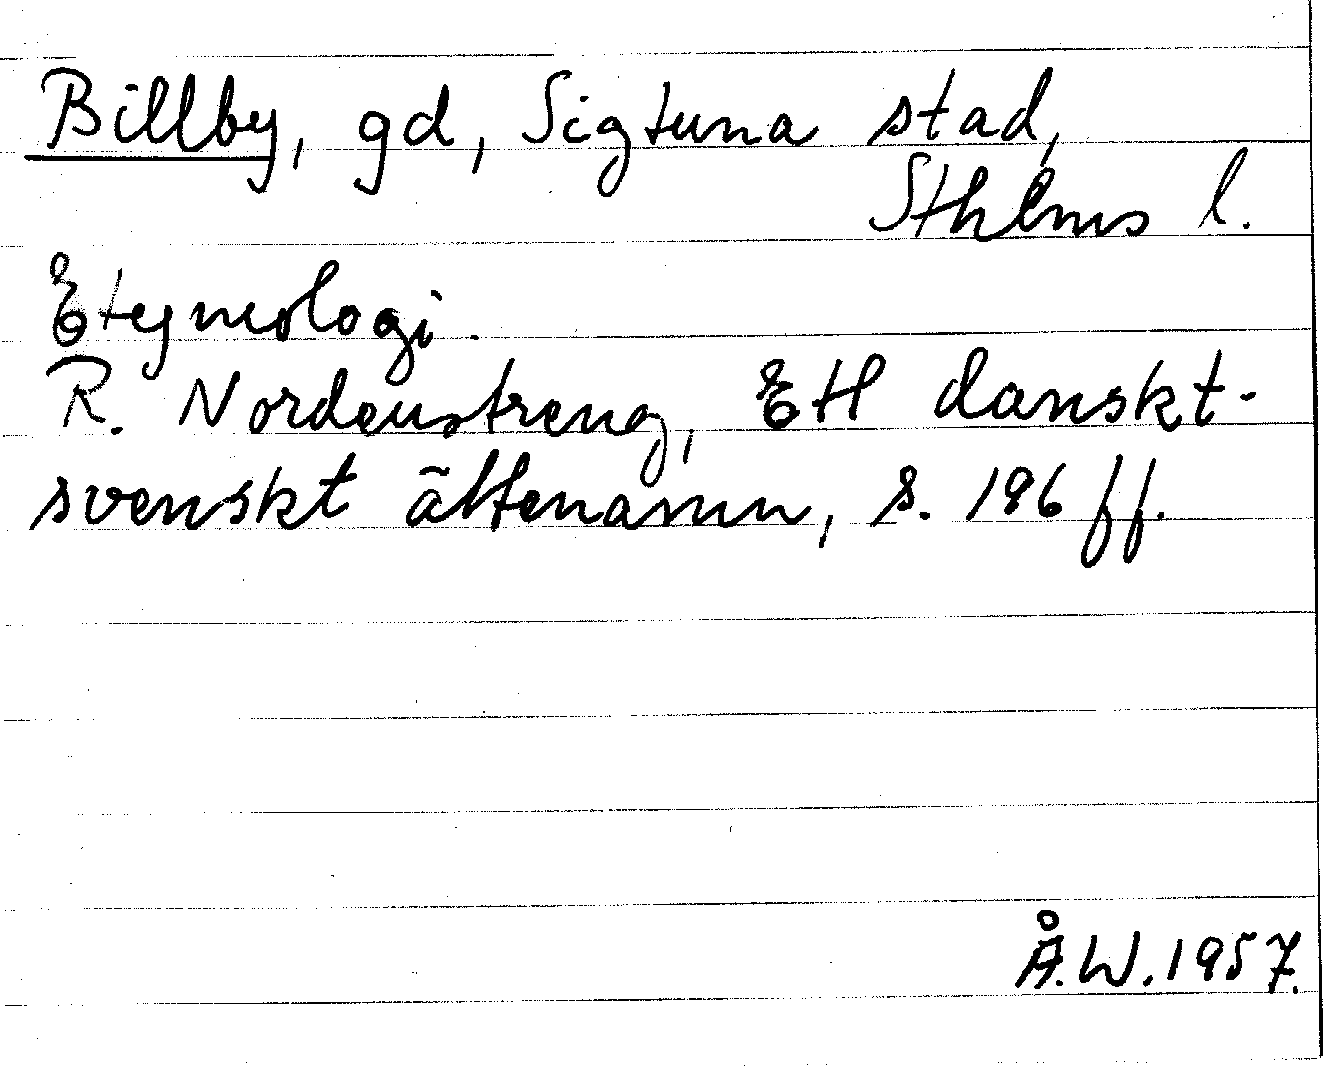 Billby, gd, Sigtuna stad,
Sthlms l.
Etymologi.
R. Nordenstreng, Ett danskt-
svenskt ättenamn, s. 196 ff.
Å.W. 1957.